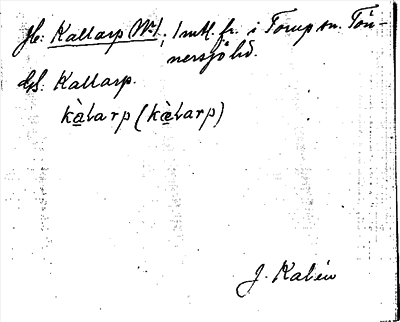 Hc. Kallarp No 1; 1 mtl. fr. i Torup sn. Tön-
nersjö hd.
Gs. Kallarp.
kàlarp (kælarp)
J. Kalén